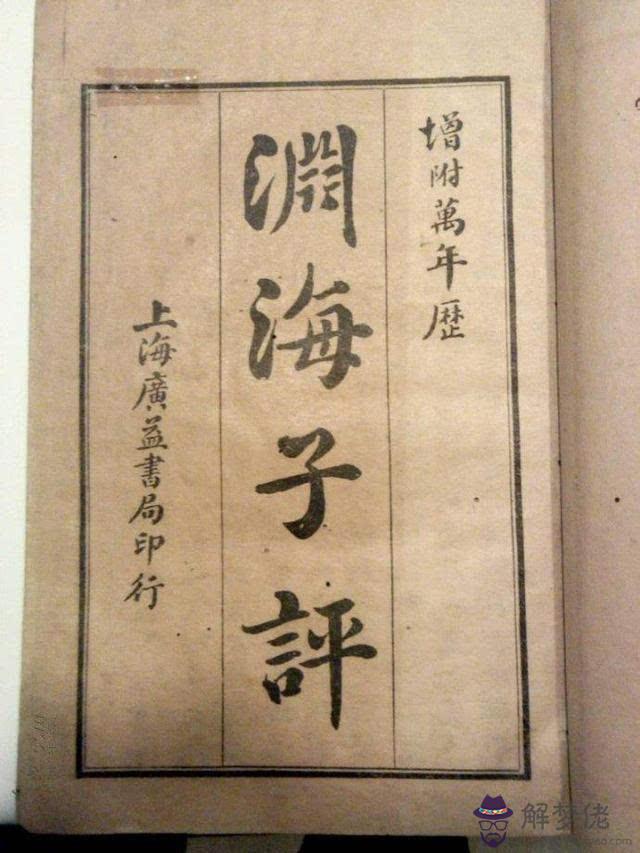 增附萬年歷
淵海子評
上海廣益書局印行
解梦佬